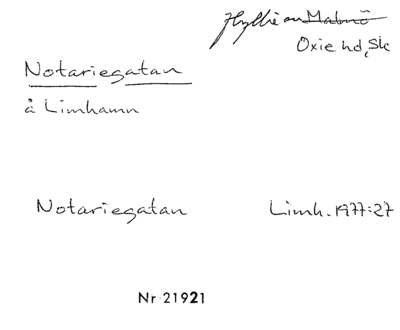 Hyllie sn Malmö
Oxie hd, Sk
Notariegatan
å Limhamn
Notariegatan Limh. 1977:27
Nr 21921